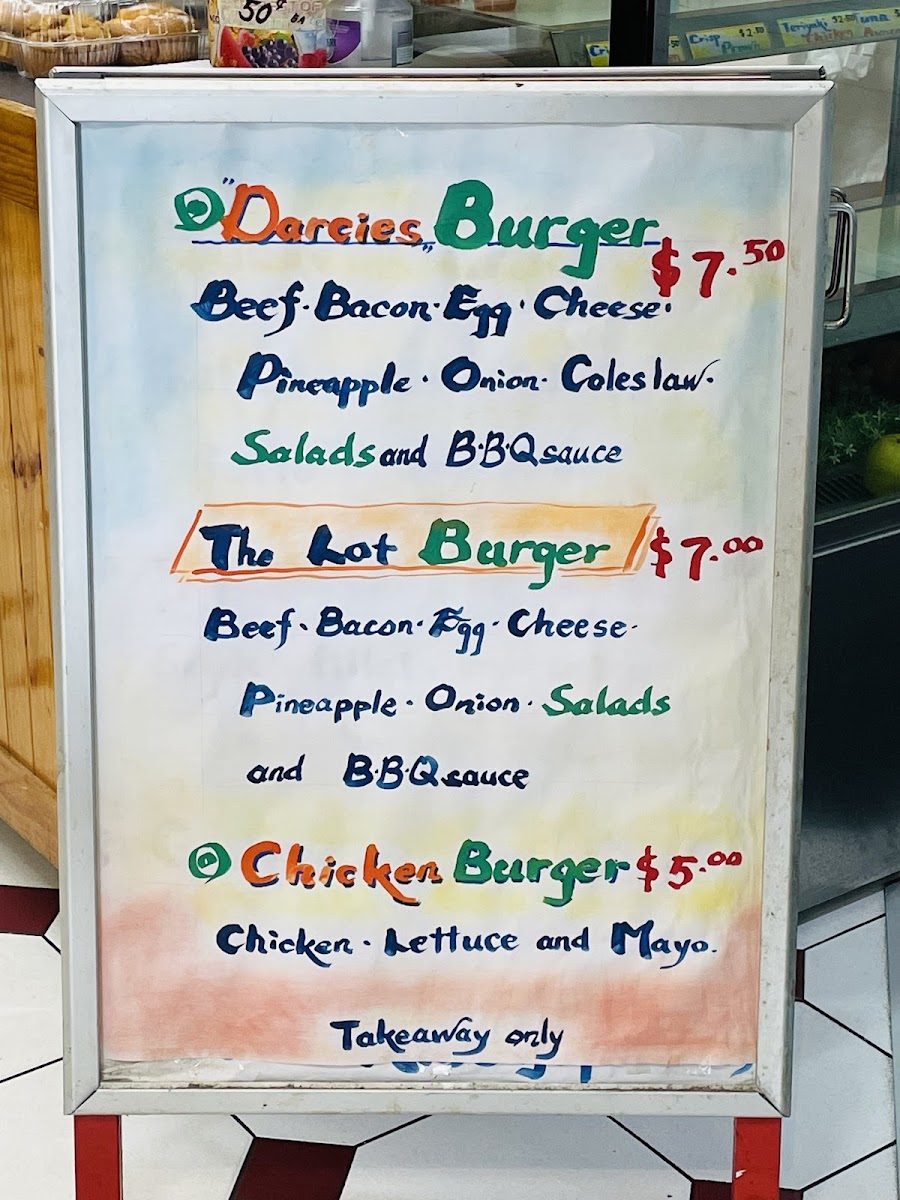 50¢
Crisp
Prawn $2.50
Teriyaki $2.50
Chicken
Tuna
"Darcies" Burger
$7.50
Beef · Bacon · Egg · Cheese ·
Pineapple · Onion · Coleslaw ·
Salads and B·B·Q sauce
The Lot Burger $7.00
Beef · Bacon · Egg · Cheese ·
Pineapple · Onion · Salads
and B·B·Q sauce
Chicken Burger $5.00
Chicken · Lettuce and Mayo.
Takeaway only